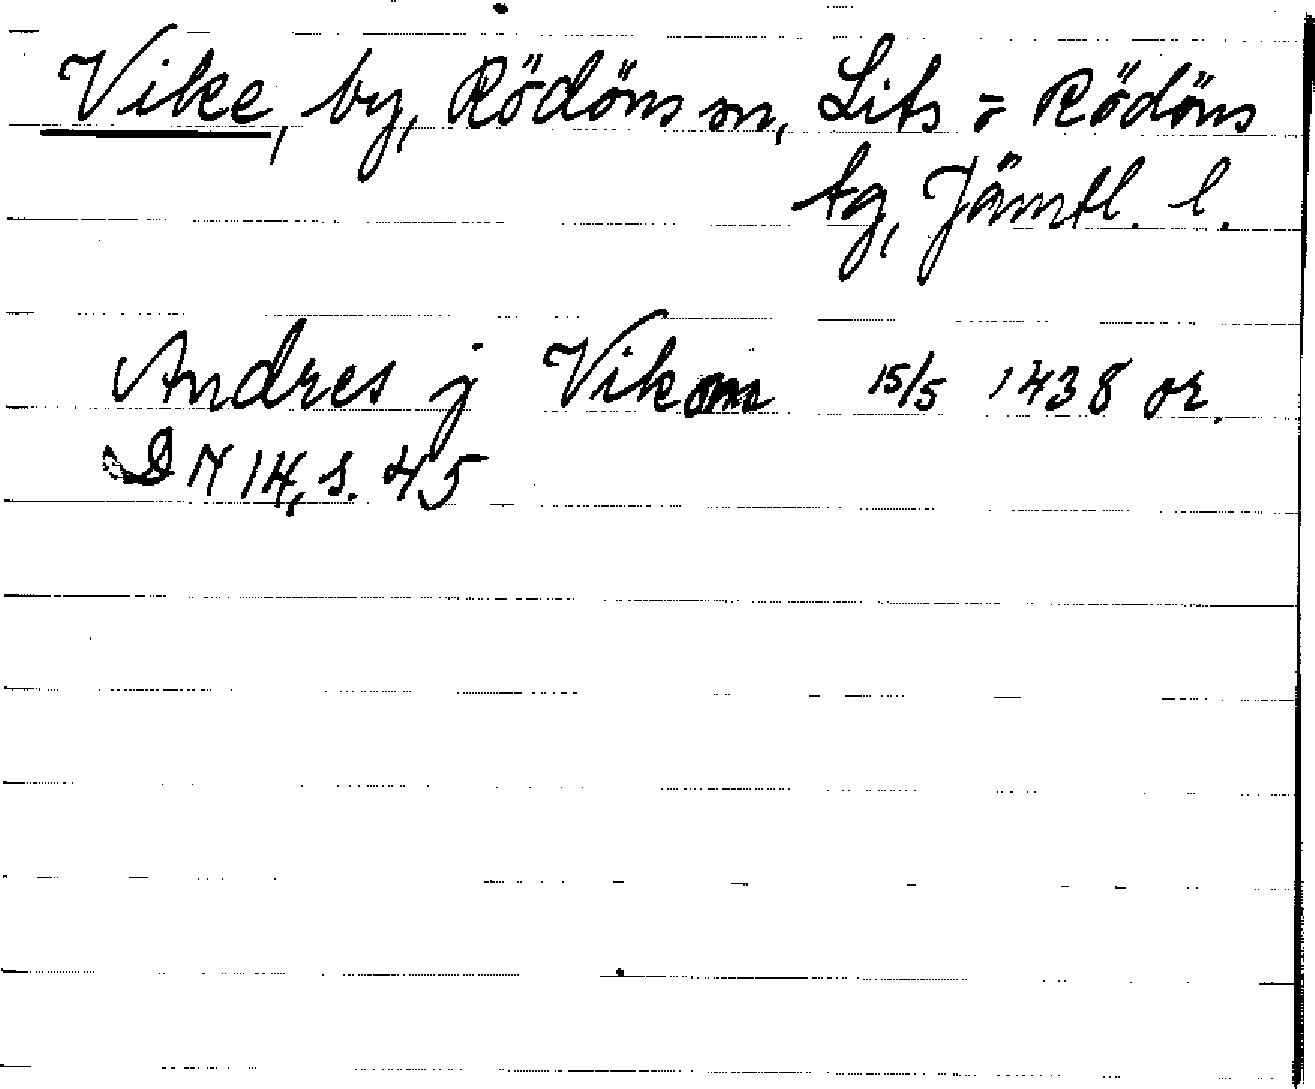 Vike, by, Rödöns sn, Lits o Rödöns
tg, Jämtl. l.
Andres j Vikom 15/5 1438 or.
DN 14, s. 45